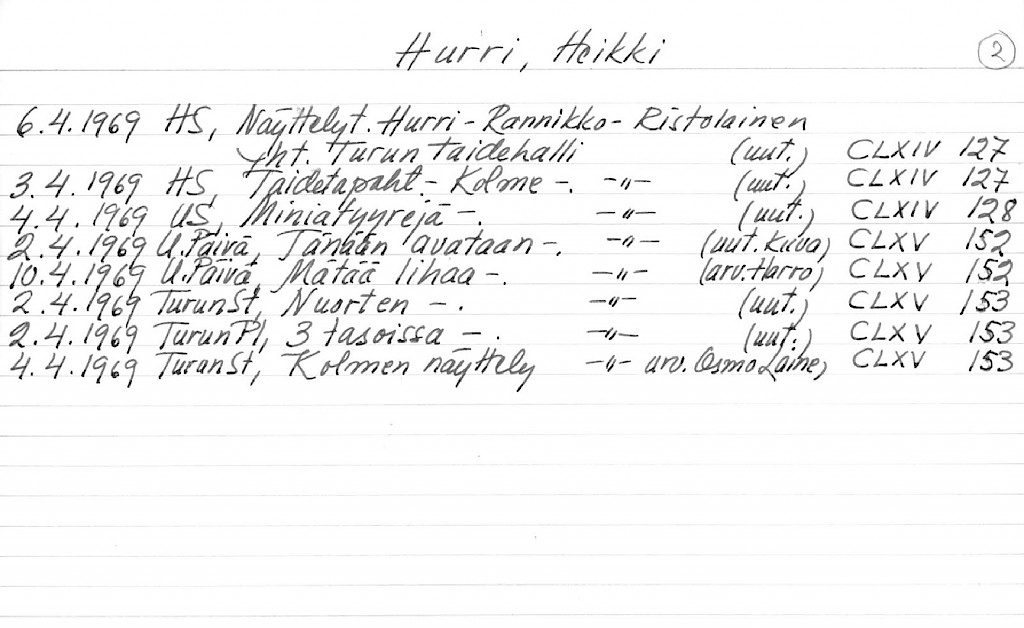 Hurri, Heikki 2
6.4.1969 HS, Näyttelyt. Hurri - Rannikko - Ristolainen
yht. Turun Taidehalli (uut.) CLXIV 127
3.4.1969 HS, Taidetapaht. - Kolme -. -"- (uut.) CLXIV 127
4.4.1969 US, Miniatyyrejä -. -"- (uut.) CLXIV 128
2.4.1969 U.Päivä, Tänään avataan -. -"- (uut. kuva) CLXV 152
10.4.1969 U.Päivä, Mätää lihaa -. -"- (arv. Harro) CLXV 152
2.4.1969 TurunSt, Nuorten -. -"- (uut.) CLXV 153
2.4.1969 TurunPl, 3 tasoissa -. -"- (uut.) CLXV 153
4.4.1969 TurunSt, Kolmen näyttely -"- arv. Osmo Laine) CLXV 153